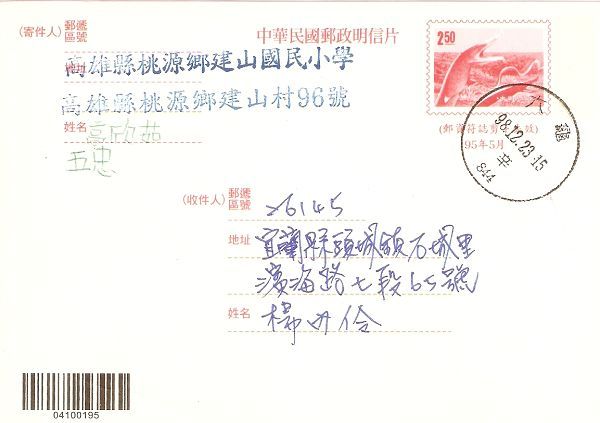 中華民國郵政明信片
2 50
(寄件人) 郵遞區號
地址
高雄縣桃源鄉建山國民小學
高雄縣桃源鄉建山村96號
姓名 高欣茹
五忠
(郵資符誌剪下無效)
95年5月
98.12.23.15
844
(收件人) 郵遞區號 26145
地址 宜蘭縣頭城鎮石城里
濱海路七段65號
姓名 楊
04100195